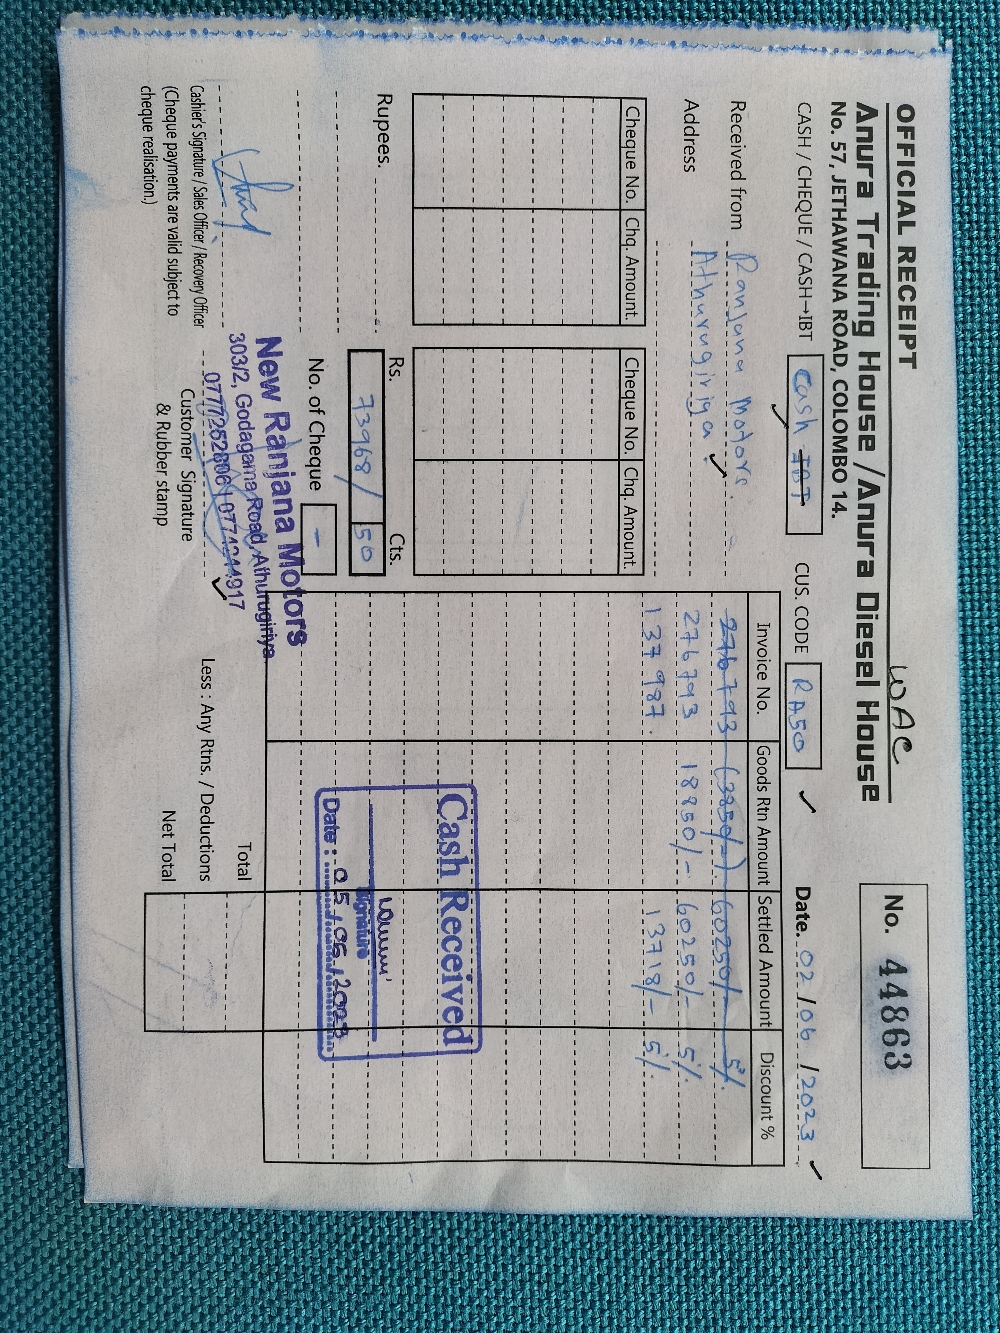 OFFICIAL RECEIPT
WAC
No. 44863
Anura Trading House / Anura Diesel House
No. 57, JETHAWANA ROAD, COLOMBO 14.
CASH / CHEQUE / CASH→IBT Cash IBT CUS. CODE RA50 Date. 02/06/2023
Received from Ranjana Motors.
Address Athurugiriya
Invoice No. Goods Rtn Amount Settled Amount Discount %
276793 (3850/-) 60250/- 5%
276793 18850/- 60250/- 5%
137987. 13718/- 5%.
Cheque No. Chq. Amount Cheque No. Chq. Amount
Rupees.
Rs. Cts.
73968/ 50
No. of Cheque -
Cash Received
Signature
Date : 05/06/2023
New Ranjana Motors
303/2, Godagama Road, Athurugiriya
0777262806 | 0774244917
Cashier's Signature / Sales Officer / Recovery Officer
(Cheque payments are valid subject to
cheque realisation.)
Customer Signature
& Rubber stamp
Total
Less : Any Rtns. / Deductions
Net Total